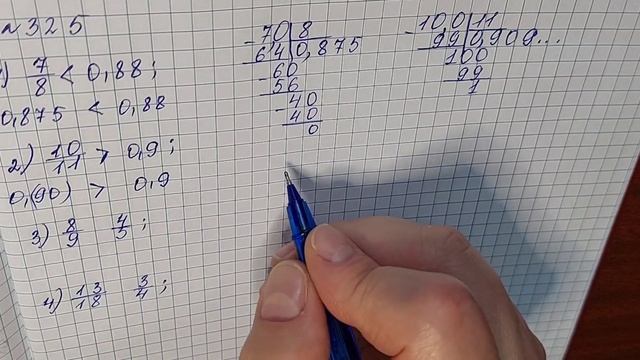 № 325
1) 7/8 < 0,88;
0,875 < 0,88
2) 10/11 > 0,9;
0,(90) > 0,9
3) 8/9 4/5;
4) 13/18 3/4;
- 70 | 8
64 | 0,875
- 60
56
- 40
40
0
- 10,0 | 11
99 | 0,909...
100
99
1